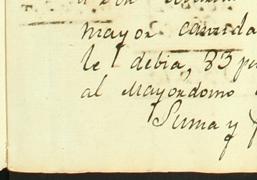 mayor cantida
le debia, 83 p
al Mayordomo
Suma y